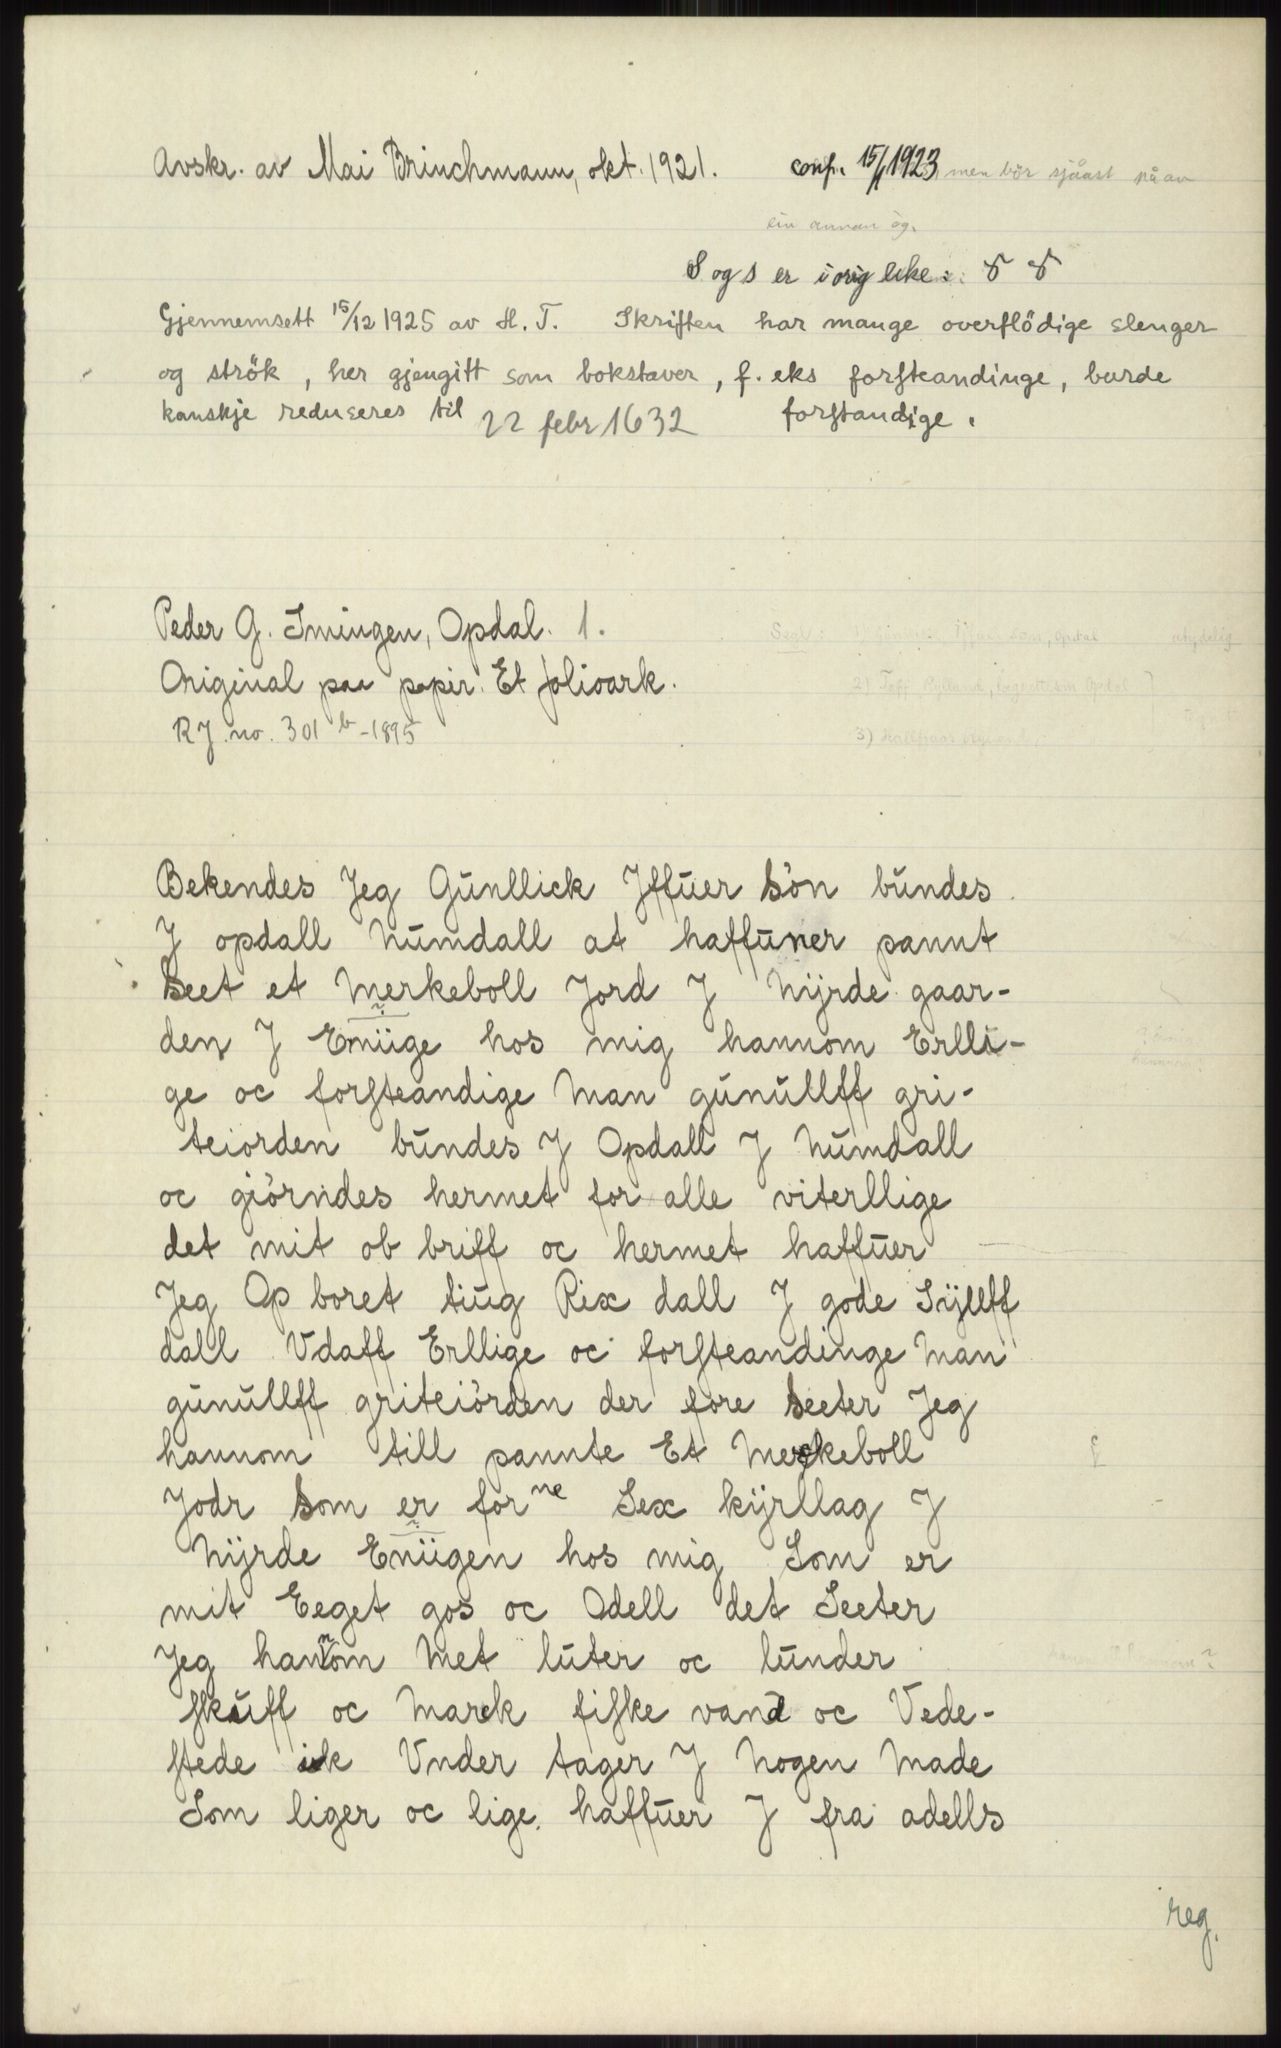 Avskr. av Mai Brinchmann, okt. 1921. conf. 15/1 1923 men bör sjåast på av
ein annan òg.
S og s er i orig like:
Gjennemsett 15/12 1925 av H. T. Skriften har mange overflödige slenger
og strök, her gjengitt som bokstaver, f. eks forsteandinge, burde
kanskje reduseres til forstandige.
22 febr 1632
Peder G. Imingen, Opdal. 1.
Original paa papir. Et folioark.
RJ. no. 301 b - 1895
Segl:
utydelig
Bekendes Jeg Gunllick Jffuer Sön bundes
J opdall Numdall at haffuner pannt
Seet et Merkeboll Jord J Nyrde gaar-
den J Emüge hos mig hannom Erlli-
ge oc forsteandige Man gunullff gri-
teiorden bundes J Opdall J Numdall
oc giörndes hermet for alle viterllige
det mit ob briff oc hermet haffuer
Jeg Op boret tiug Rix dall J gode Syllff
dall Vdaff Erllige oc forsteandinge Man
gunullff griteiörden der fore Seeter Jeg
hannom till pannte Et Merkeboll
Jodr Som er for ne Sex kyrllag J
Nyrde Enügen hos mig Som er
mit Eeget gos oc Odell det Seeter
Jeg hannom Met luter oc lunder
skuff oc Marck fiske vand oc Vede-
stede ik Vnder tager J Nogen Made
Som liger oc lige haffuer J fra adells
reg.